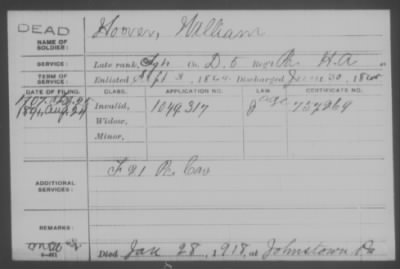 DEAD
NAME OF SOLDIER: Hoover, William
SERVICE: Late rank, Co. D. 5 Reg't Pa H.A.
TERM OF SERVICE: Enlisted Sept 3, 1864. Discharged June 30, 186
DATE OF FILING. CLASS. APPLICATION NO. LAW. CERTIFICATE NO.
Invalid, 1049317 757269
Widow,
Minor,
ADDITIONAL SERVICES: F 21 Pa Cav
REMARKS:
Died Jan 28, 1918, at Johnstown Pa